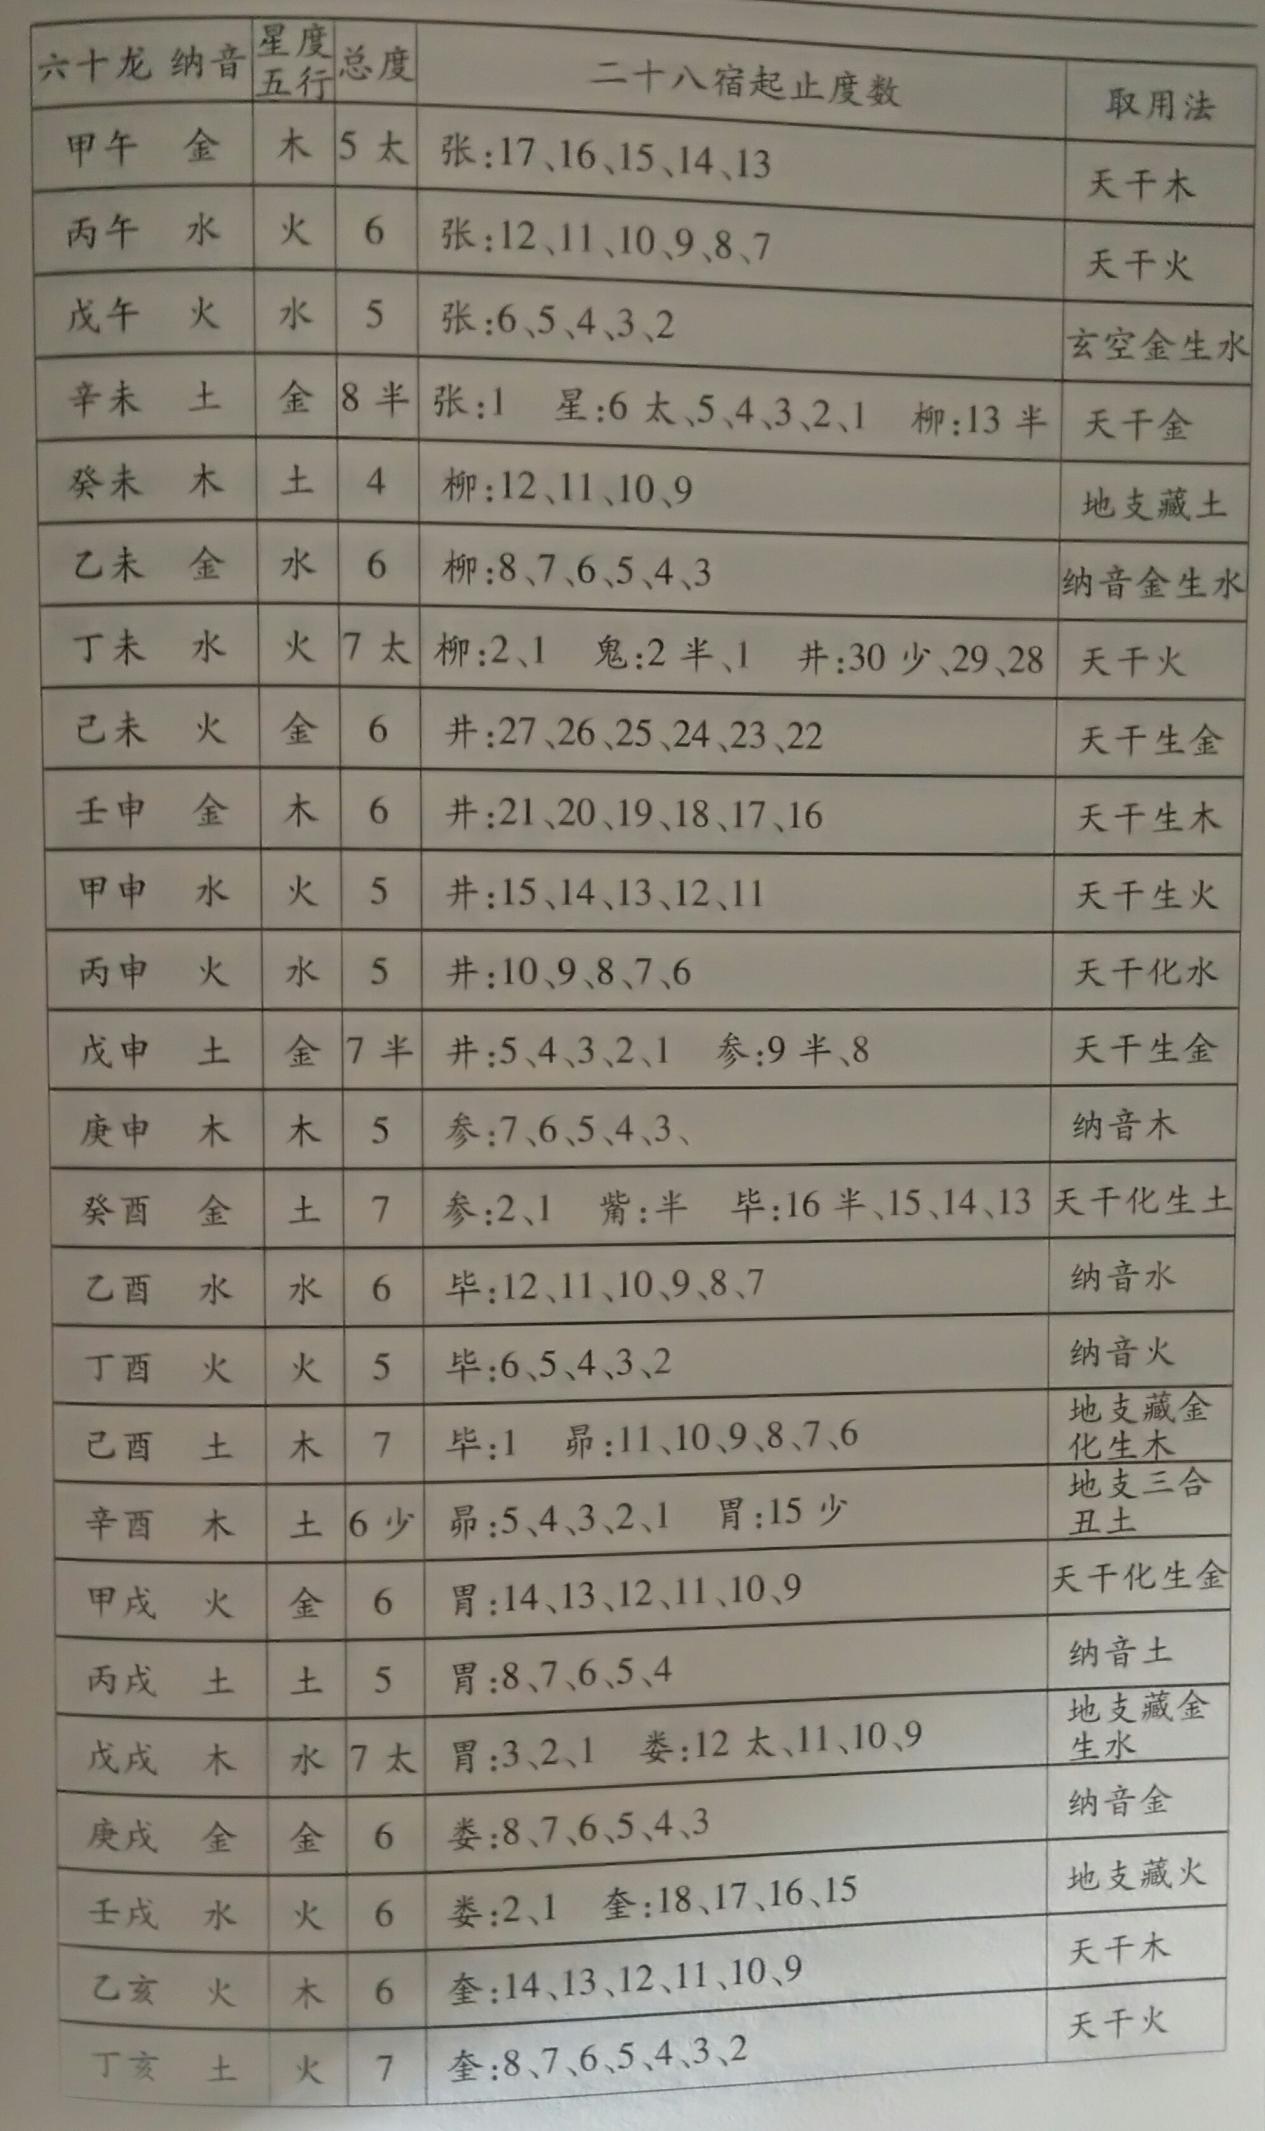 六十龙 纳音 星度五行 总度 二十八宿起止度数 取用法
甲午 金 木 5太 张:17、16、15、14、13 天干木
丙午 水 火 6 张:12、11、10、9、8、7 天干火
戊午 火 水 5 张:6、5、4、3、2 玄空金生水
辛未 土 金 8半 张:1 星:6太、5、4、3、2、1 柳:13半 天干金
癸未 木 土 4 柳:12、11、10、9 地支藏土
乙未 金 水 6 柳:8、7、6、5、4、3 纳音金生水
丁未 水 火 7太 柳:2、1 鬼:2半、1 井:30少、29、28 天干火
己未 火 金 6 井:27、26、25、24、23、22 天干生金
壬申 金 木 6 井:21、20、19、18、17、16 天干生木
甲申 水 火 5 井:15、14、13、12、11 天干生火
丙申 火 水 5 井:10、9、8、7、6 天干化水
戊申 土 金 7半 井:5、4、3、2、1 参:9半、8 天干生金
庚申 木 木 5 参:7、6、5、4、3、 纳音木
癸酉 金 土 7 参:2、1 觜:半 毕:16半、15、14、13 天干化生土
乙酉 水 水 6 毕:12、11、10、9、8、7 纳音水
丁酉 火 火 5 毕:6、5、4、3、2 纳音火
己酉 土 木 7 毕:1 昴:11、10、9、8、7、6 地支藏金化生木
辛酉 木 土 6少 昴:5、4、3、2、1 胃:15少 地支三合丑土
甲戌 火 金 6 胃:14、13、12、11、10、9 天干化生金
丙戌 土 土 5 胃:8、7、6、5、4 纳音土
戊戌 木 水 7太 胃:3、2、1 娄:12太、11、10、9 地支藏金生水
庚戌 金 金 6 娄:8、7、6、5、4、3 纳音金
壬戌 水 火 6 娄:2、1 奎:18、17、16、15 地支藏火
乙亥 火 木 6 奎:14、13、12、11、10、9 天干木
丁亥 土 火 7 奎:8、7、6、5、4、3、2 天干火